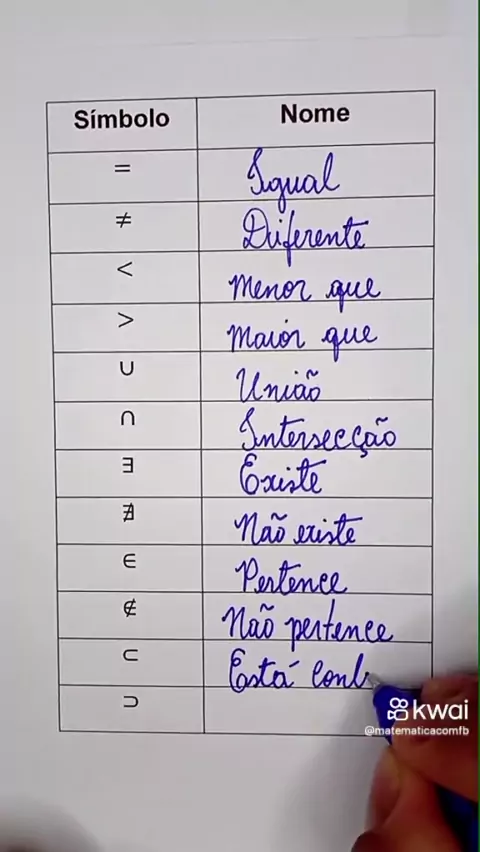 Símbolo Nome
= Igual
≠ Diferente
< Menor que
> Maior que
∪ União
∩ Intersecção
∃ Existe
∄ Não existe
∈ Pertence
∉ Não pertence
⊂ Está cont
⊃
kwai
@matematicacomfb